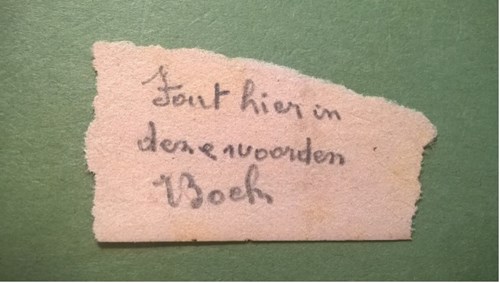 Fout hier in
deze woorden
Boek